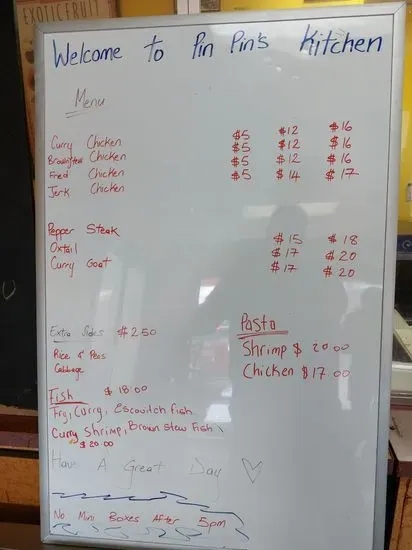 EXOTIC FRUIT
Welcome to Pin Pin's Kitchen
Menu
Curry Chicken $5 $12 $16
Brownstew Chicken $5 $12 $16
Fried Chicken $5 $12 $16
Jerk Chicken $5 $14 $17
Pepper Steak $15 $18
Oxtail $17 $20
Curry Goat $17 $20
Extra Sides $2.50
Rice & Peas
Cabbage
Pasta
Shrimp $20.00
Chicken $17.00
Fish $18.00
Fry, Curry, Escovitch fish
Curry Shrimp, Brown Stew Fish
$20.00
Have A Great Day
No Mini Boxes After 5pm